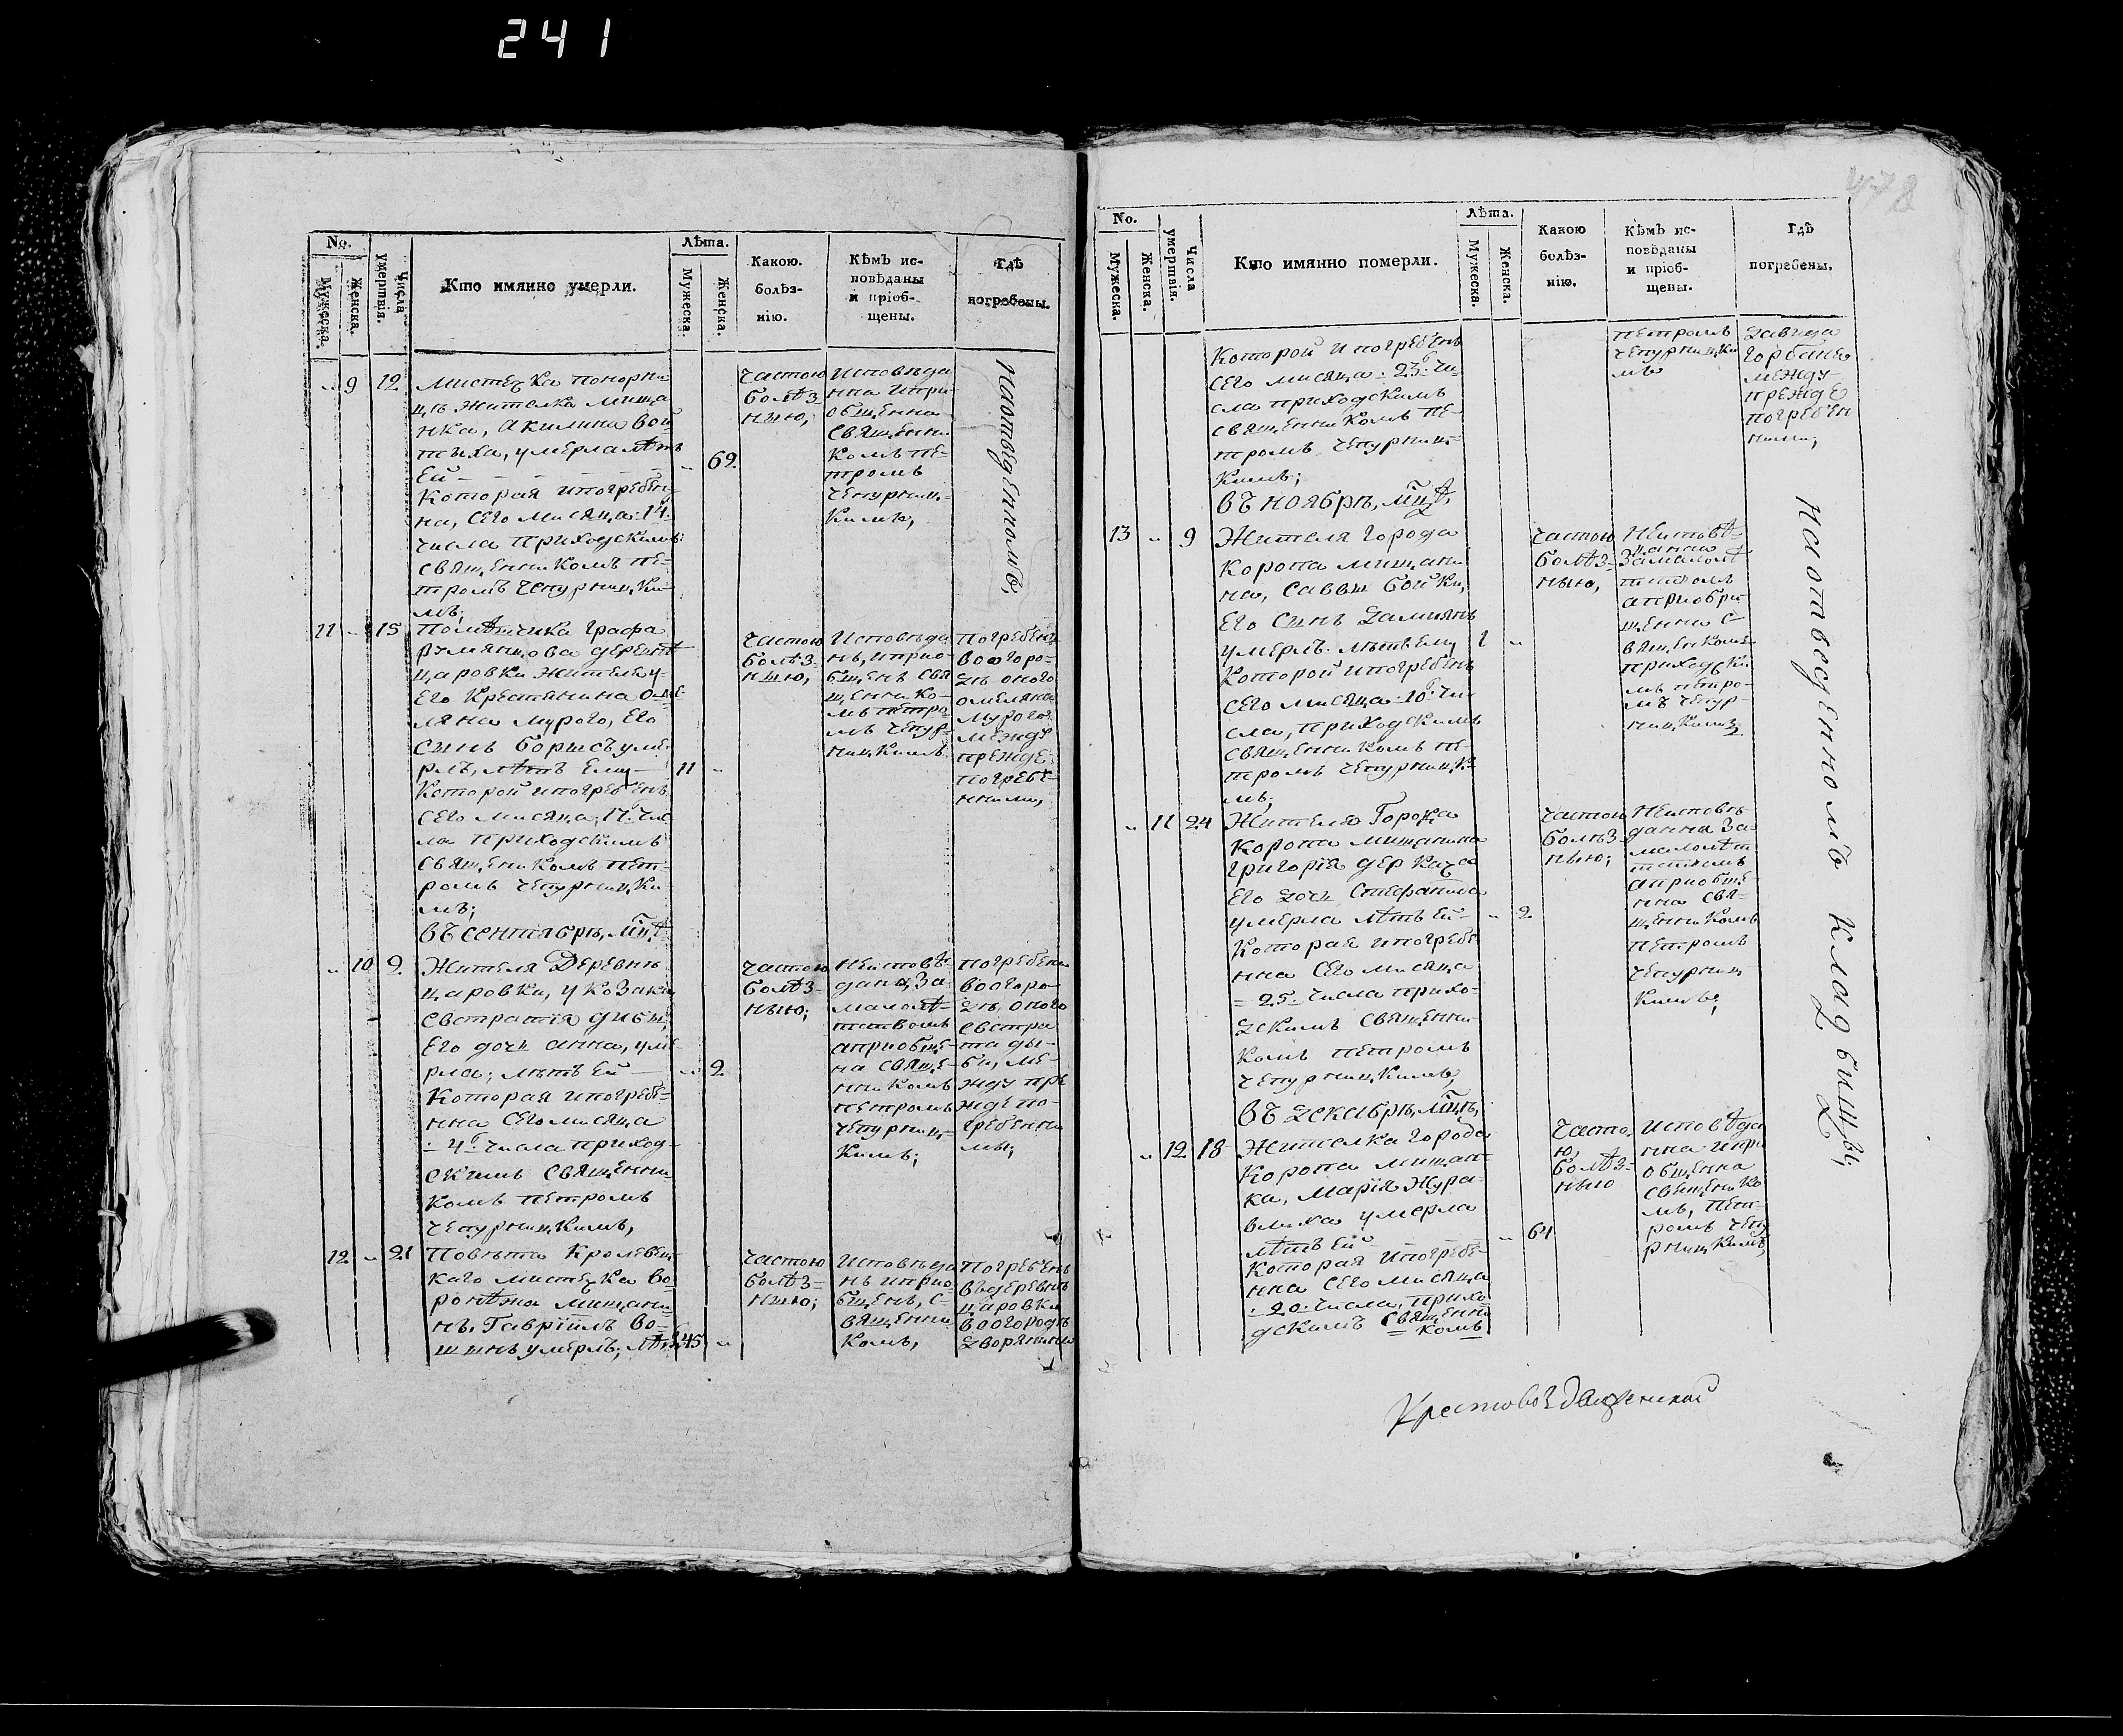 241
No.
Мужеска.
Женска.
Числа умертвія.
Кто имянно умерли.
Лѣта.
Мужеска.
Женска.
Какою. болѣз- нію.
Кѣмъ ис- повѣданы и пріоб- щены.
Гдѣ погребены.
9 12
Мистечка понорни
цъ жителка мища
нка, акилина вой
тыха, умерла лѣтъ
Ей 69
Которая ипогребен
на, сего мисяца 14
числа приходскимъ
священникомъ пе-
тромъ чепурниц,ки-
мъ;
частою
болѣз
нию,
исповѣда
нна ипри
общенна
священни
комъ пе-
тромъ
чепурниц-
кимъ,
Наотведенномъ
11 15
помѣщика графа
румянцова деревнѣ
царовки жителя у
его крестянина оме
ляна мурого, его
синъ борисъ уме
рлъ, лѣтъ ему 11
Которой ипогребенъ
сего мисяца, 17 чис
ла приходскимъ
священикомъ пет-
ромъ чепурниц,ки
мъ;
частою
болѣз-
нию,
исповѣда
нъ, иприо-
бщенъ свя
щеннико-
мъ петро
мъ чепур-
ниц,кимъ
погребенъ
вооогоро-
дѣ оного
омеляна
мурого
между
прежде
погребе-
нними,
въ сентябрѣ, мцѣ
10 2
Жителя Деревнѣ
царовка, у козака
Евстратія дибы,
его дочь анна, уме
рла; лѣтъ ей 2
Которая ипогребе-
нна сего мисяца
4 числа приход-
скимъ священни-
комъ петромъ
чепурниц,кимъ,
частою
болѣз-
нью;
Неисповѣ-
дана, за-
малолѣ-
тствомъ
априобще-
на свяще-
нникомъ
петромъ
чепурниц-
кимъ;
погребена
воогоро-
дѣ, оного
Евстра
тія ди-
би, ме-
жду пре
жде по-
гребенни
ми;
12 21
повѣта Кролевец-
каго мистечка во
ронѣжа мищани
нъ, Гаврїилъ во-
шинъ умерлъ; лѣтъ 45
частою
болѣз-
нию;
исповѣда
нъ иприо-
бщенъ, с-
вященни
комъ,
погребенъ
въдеревнѣ
царовки
воогородѣ
дворянина
478
No.
Мужеска.
Женска.
Числа умертвія.
Кто имянно померли.
Лѣта.
Мужеска.
Женска.
Какою болѣз- нію.
Кѣмъ ис- повѣданы и пріоб- щены.
Гдѣ погребены.
Которой ипогребенъ
сего мисяца 23 чи-
сла приходскимъ
священникомъ пе-
тромъ чепурниц-
кимъ;
петромъ
чепурниц,ки
мъ
Давида
Горбанев
между
прежде
погребен
ними;
въ ноябрѣ, мцѣ,
13 9
Жителя города
коропа мищани
на, саввы бойки,
его синъ дамиянъ
умерлъ лѣтъ ему 1
Которой ипогребенъ
сего мисяца 10 чи
сла, приходскимъ
священникомъ пе-
тромъ чепурниц,ки
мъ;
частою
болѣз-
нью,
Неисповѣ-
данна
Замалолѣ
тствомъ
априобри
щенна с-
вященкомъ
приходски
мъ петро-
мъ чепур-
ниц,кимъ
11 24
Жителя Города
коропа мищанина
григорія деркача
его дочь Стефанида
умерла лѣтъ ей 2
Которая ипогребе
нна сего мисяца
25 числа прихо-
дскимъ священни-
комъ петромъ
чепурниц,кимъ,
частою
болѣз
нью;
Неисповѣ-
данна за-
малолѣт
ствомъ
априобще
нна свя-
щенникомъ
петромъ
чепурниц
кимъ;
въ декабрѣ, мцѣ,
12 18
Жителка города
коропа мищан-
ка, марїя жура-
влиха умерла
лѣтъ ей 64
Которая ипогребе-
нна сего мисяца
20 числа, прихо
дскимъ священни
комъ
часто
ю,
болѣз-
нью
исповѣда
нна ипри
общенна
священико
мъ, пет-
ромъ чепу
рниц,кимъ
Наотведенномъ кладбищи,
Крестовоздвиженской